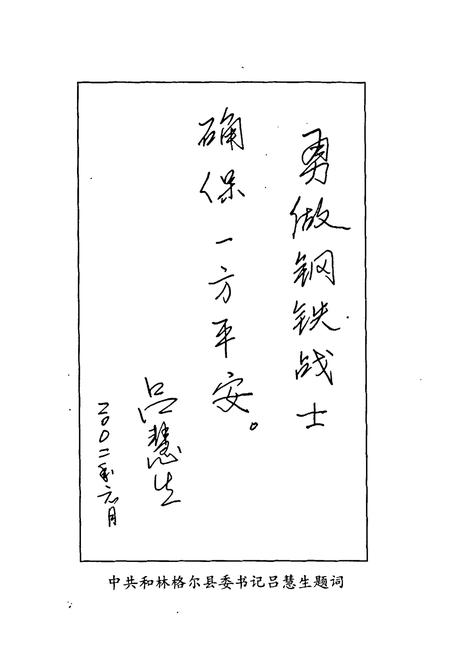 勇做钢铁战士
确保一方平安。
吕慧生
二〇〇二年六月
中共和林格尔县委书记吕慧生题词